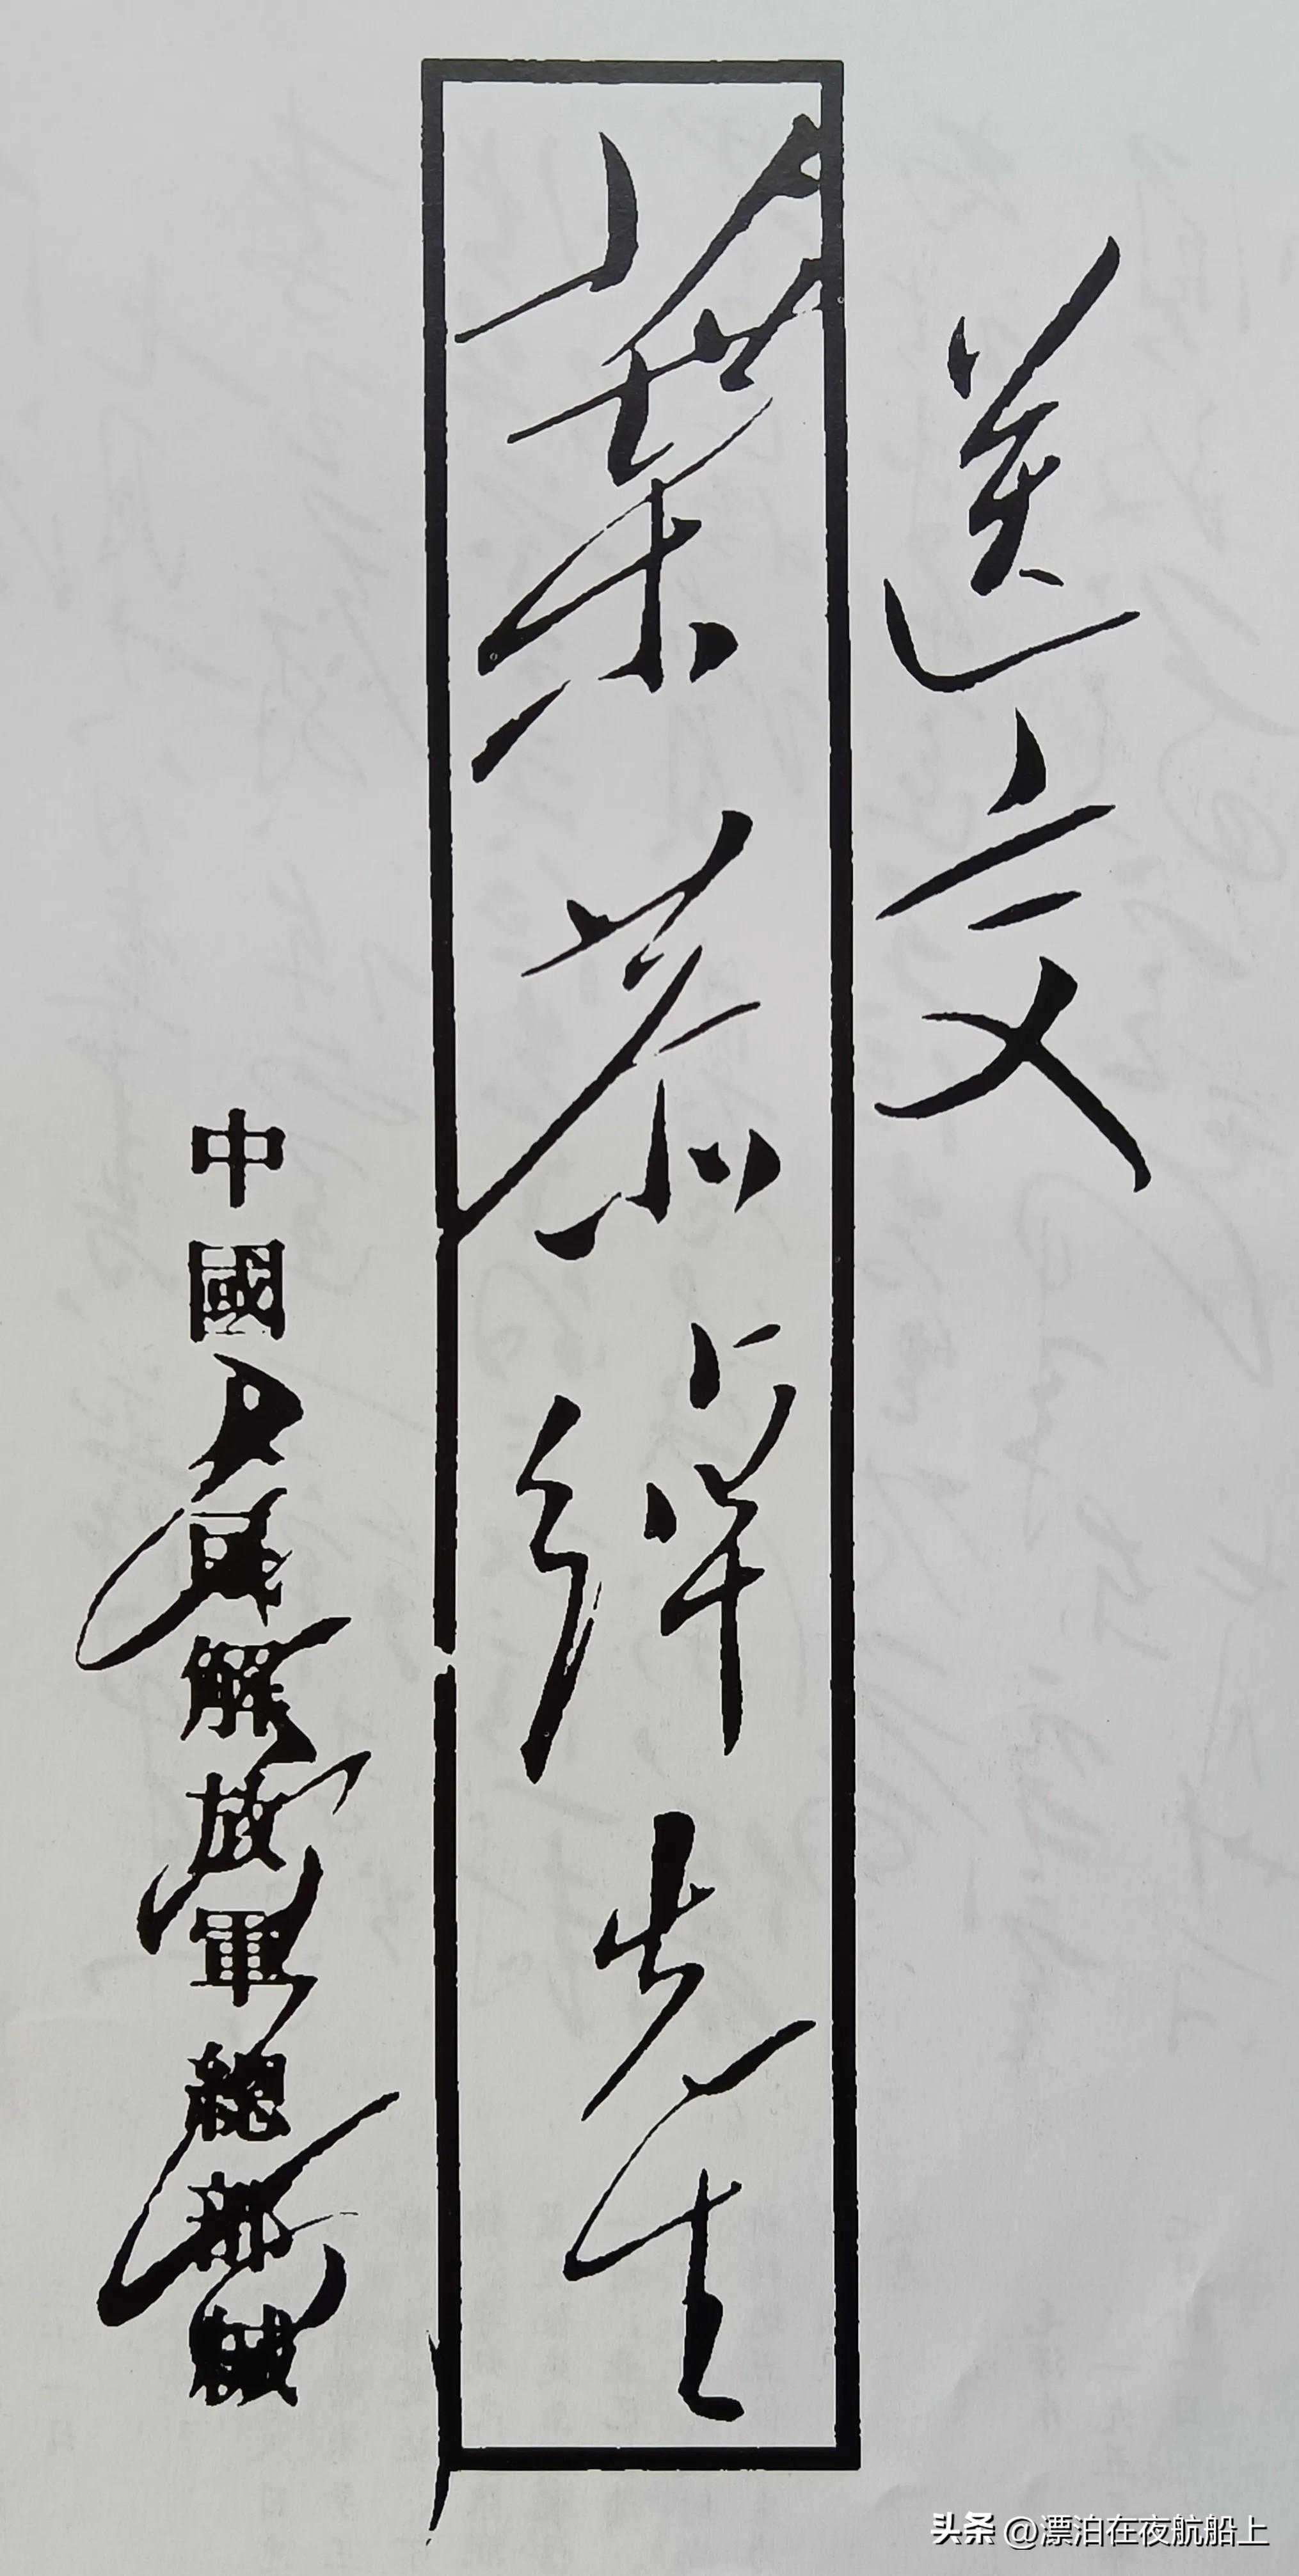 送交
葉恭綽先生
中國人民解放軍總部緘
头条 @漂泊在夜航船上